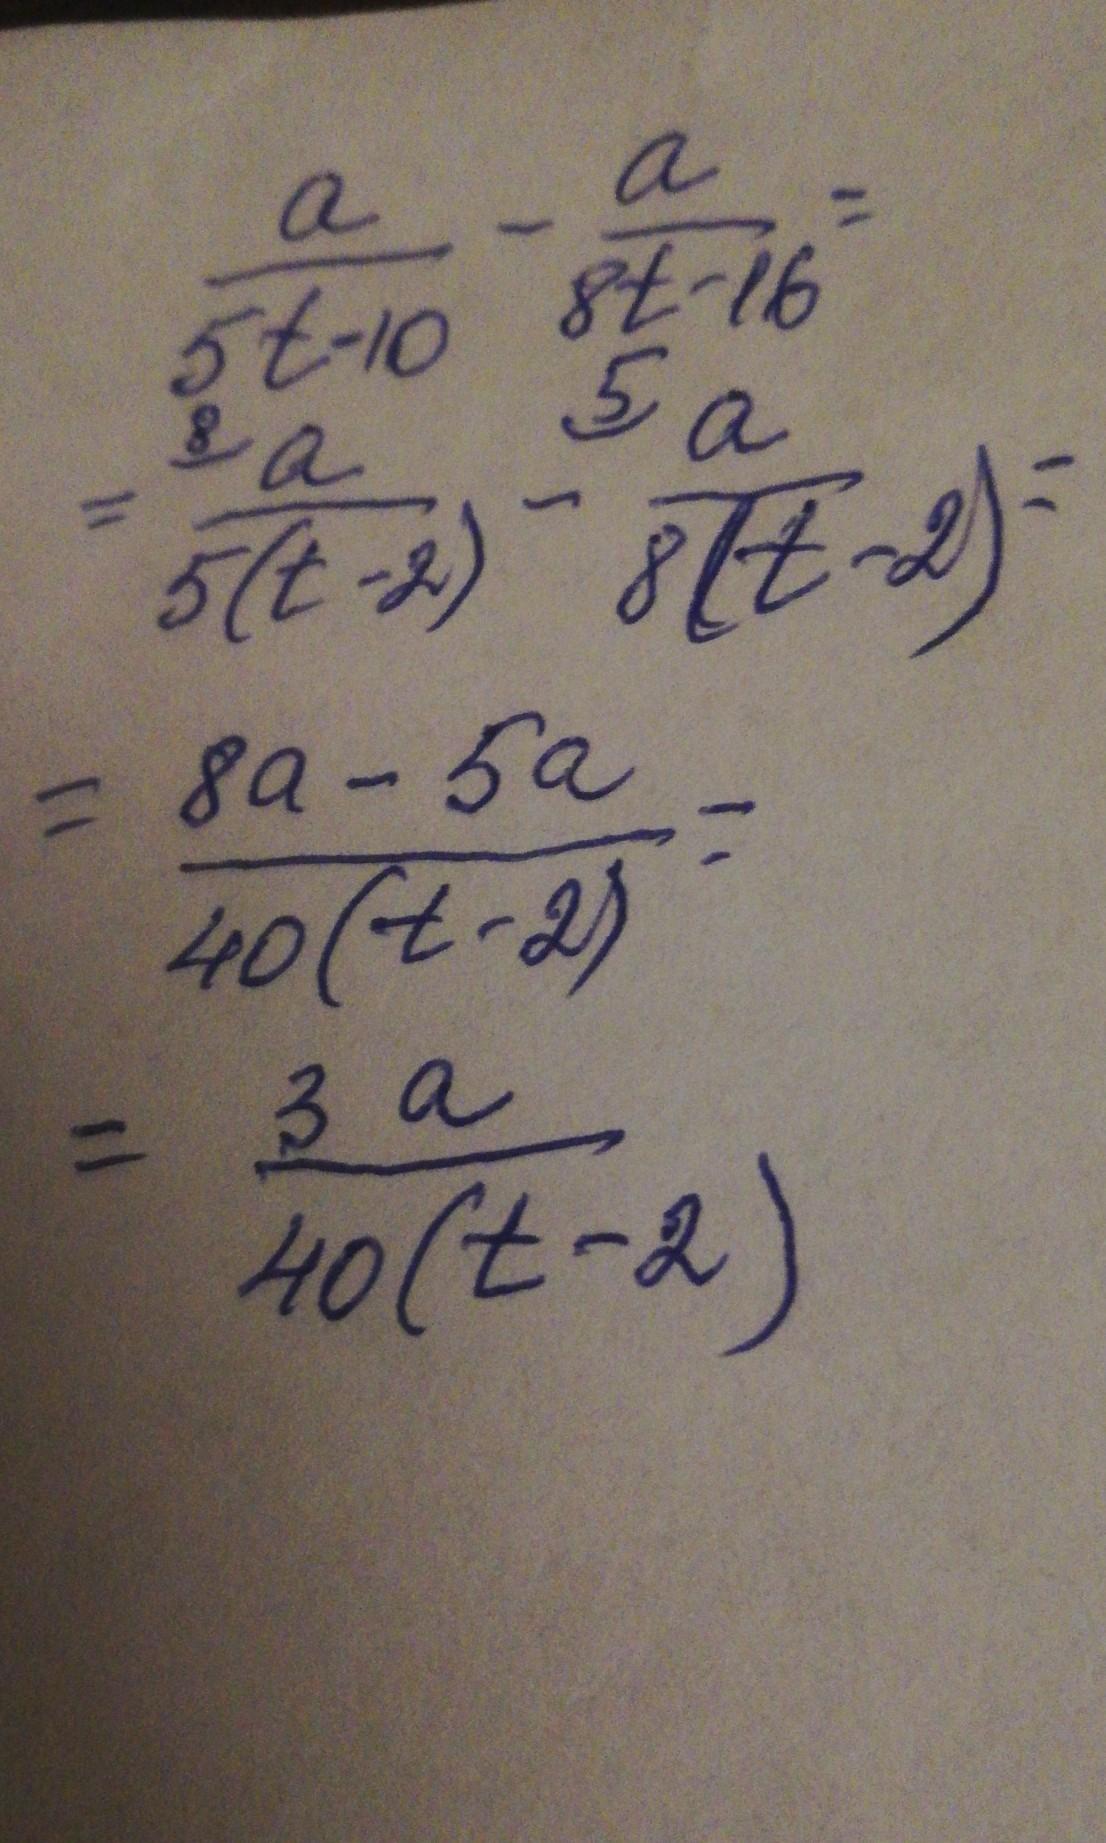 a/(5t-10) - a/(8t-16) =
= 8⌣ a/5(t-2) - 5⌣ a/8(t-2) =
= (8a - 5a)/40(t-2) =
= 3a/40(t-2)